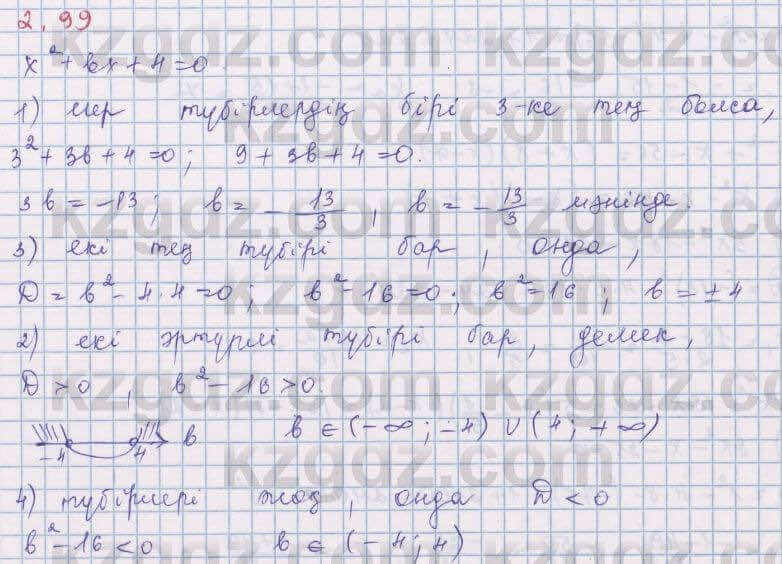 2.99
x² + bx + 4 = 0
1) егер түбірлердің бірі 3-ке тең болса,
3² + 3b + 4 = 0; 9 + 3b + 4 = 0.
3b = -13; b = -13/3, b = -13/3 мәнінде.
3) екі тең түбірі бар, онда,
D = b² - 4·4 = 0; b² - 16 = 0; b² = 16; b = ±4
2) екі әртүрлі түбірі бар, демек,
D > 0, b² - 16 > 0.
-4 4 b b ∈ (-∞; -4) ∪ (4; +∞)
4) түбірлері жоқ, онда D < 0
b² - 16 < 0 b ∈ (-4; 4)
kzgdz.com